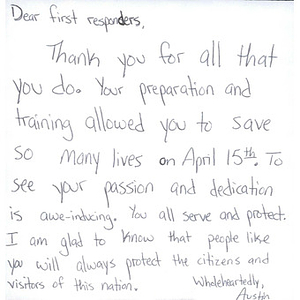 Dear first responders,
Thank you for all that
you do. Your preparation and
training allowed you to save
so many lives on April 15th. To
see your passion and dedication
is awe-inducing. You all serve and protect.
I am glad to know that people like
you will always protect the citizens and
visitors of this nation. Wholeheartedly,
Austin